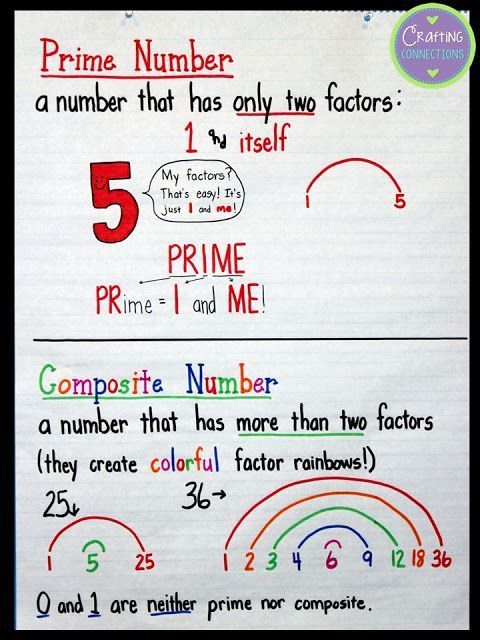 Crafting
CONNECTIONS
Prime Number
a number that has only two factors:
1 and itself
5
My factors?
That's easy! It's
just 1 and me!
1 5
PRIME
PRime = 1 and ME!
Composite Number
a number that has more than two factors
(they create colorful factor rainbows!)
25 36
1 5 25
1 2 3 4 6 9 12 18 36
0 and 1 are neither prime nor composite.